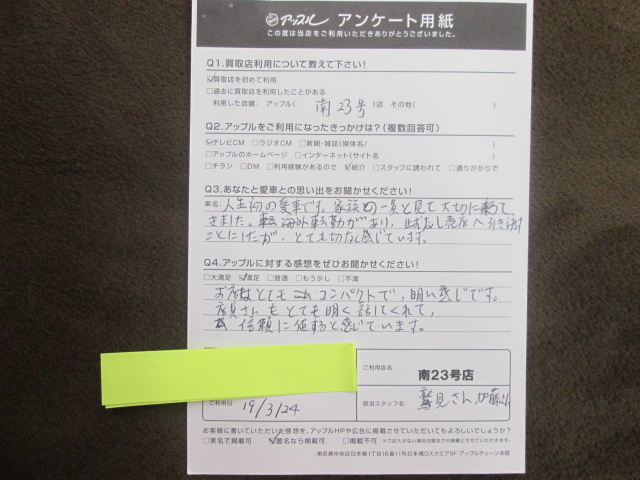 アップル アンケート用紙
この度は当店をご利用いただきありがとうございました。
Q1.買取店利用について教えて下さい!
☑買取店を初めて利用
□過去に買取店を利用したことがある
利用した店舗: アップル( 南23号 )店 その他( )
Q2.アップルをご利用になったきっかけは?(複数回答可)
☑テレビCM □ラジオCM □新聞・雑誌(媒体名/ )
□アップルのホームページ □インターネット(サイト名 )
□チラシ □DM □利用経験があるので ☑紹介 □スタッフに誘われて □通りがかりで
Q3.あなたと愛車との思い出をお聞かせください!
車名: 人生初の愛車です。家族の一員と見て大切に乗って
きました。海外転勤があり、止むなし売店へ引き渡す
ことにしたが、とても切なく感じています。
Q4.アップルに対する感想をぜひお聞かせください!
□大満足 ☑満足 □普通 □もう少し □不満
お店はとてもコンパクトで、明い感じです。
店員さんもとても明く話してくれて、
信頼に値すると感じています。
ご利用店名:
南23号店
ご利用日 19/3/24
担当スタッフ名: 鷲見さん、加藤
お客様に書いていただいた感想を、アップルHPや広告に掲載させていただいてもよろしいでしょうか?
□実名で掲載可 ☑匿名なら掲載可 □掲載不可 ※ご記入がない場合は匿名での掲載とさせていただきます。
東京都中央区日本橋1丁目16番11号日本橋Dスクエア9F アップルチェーン本部